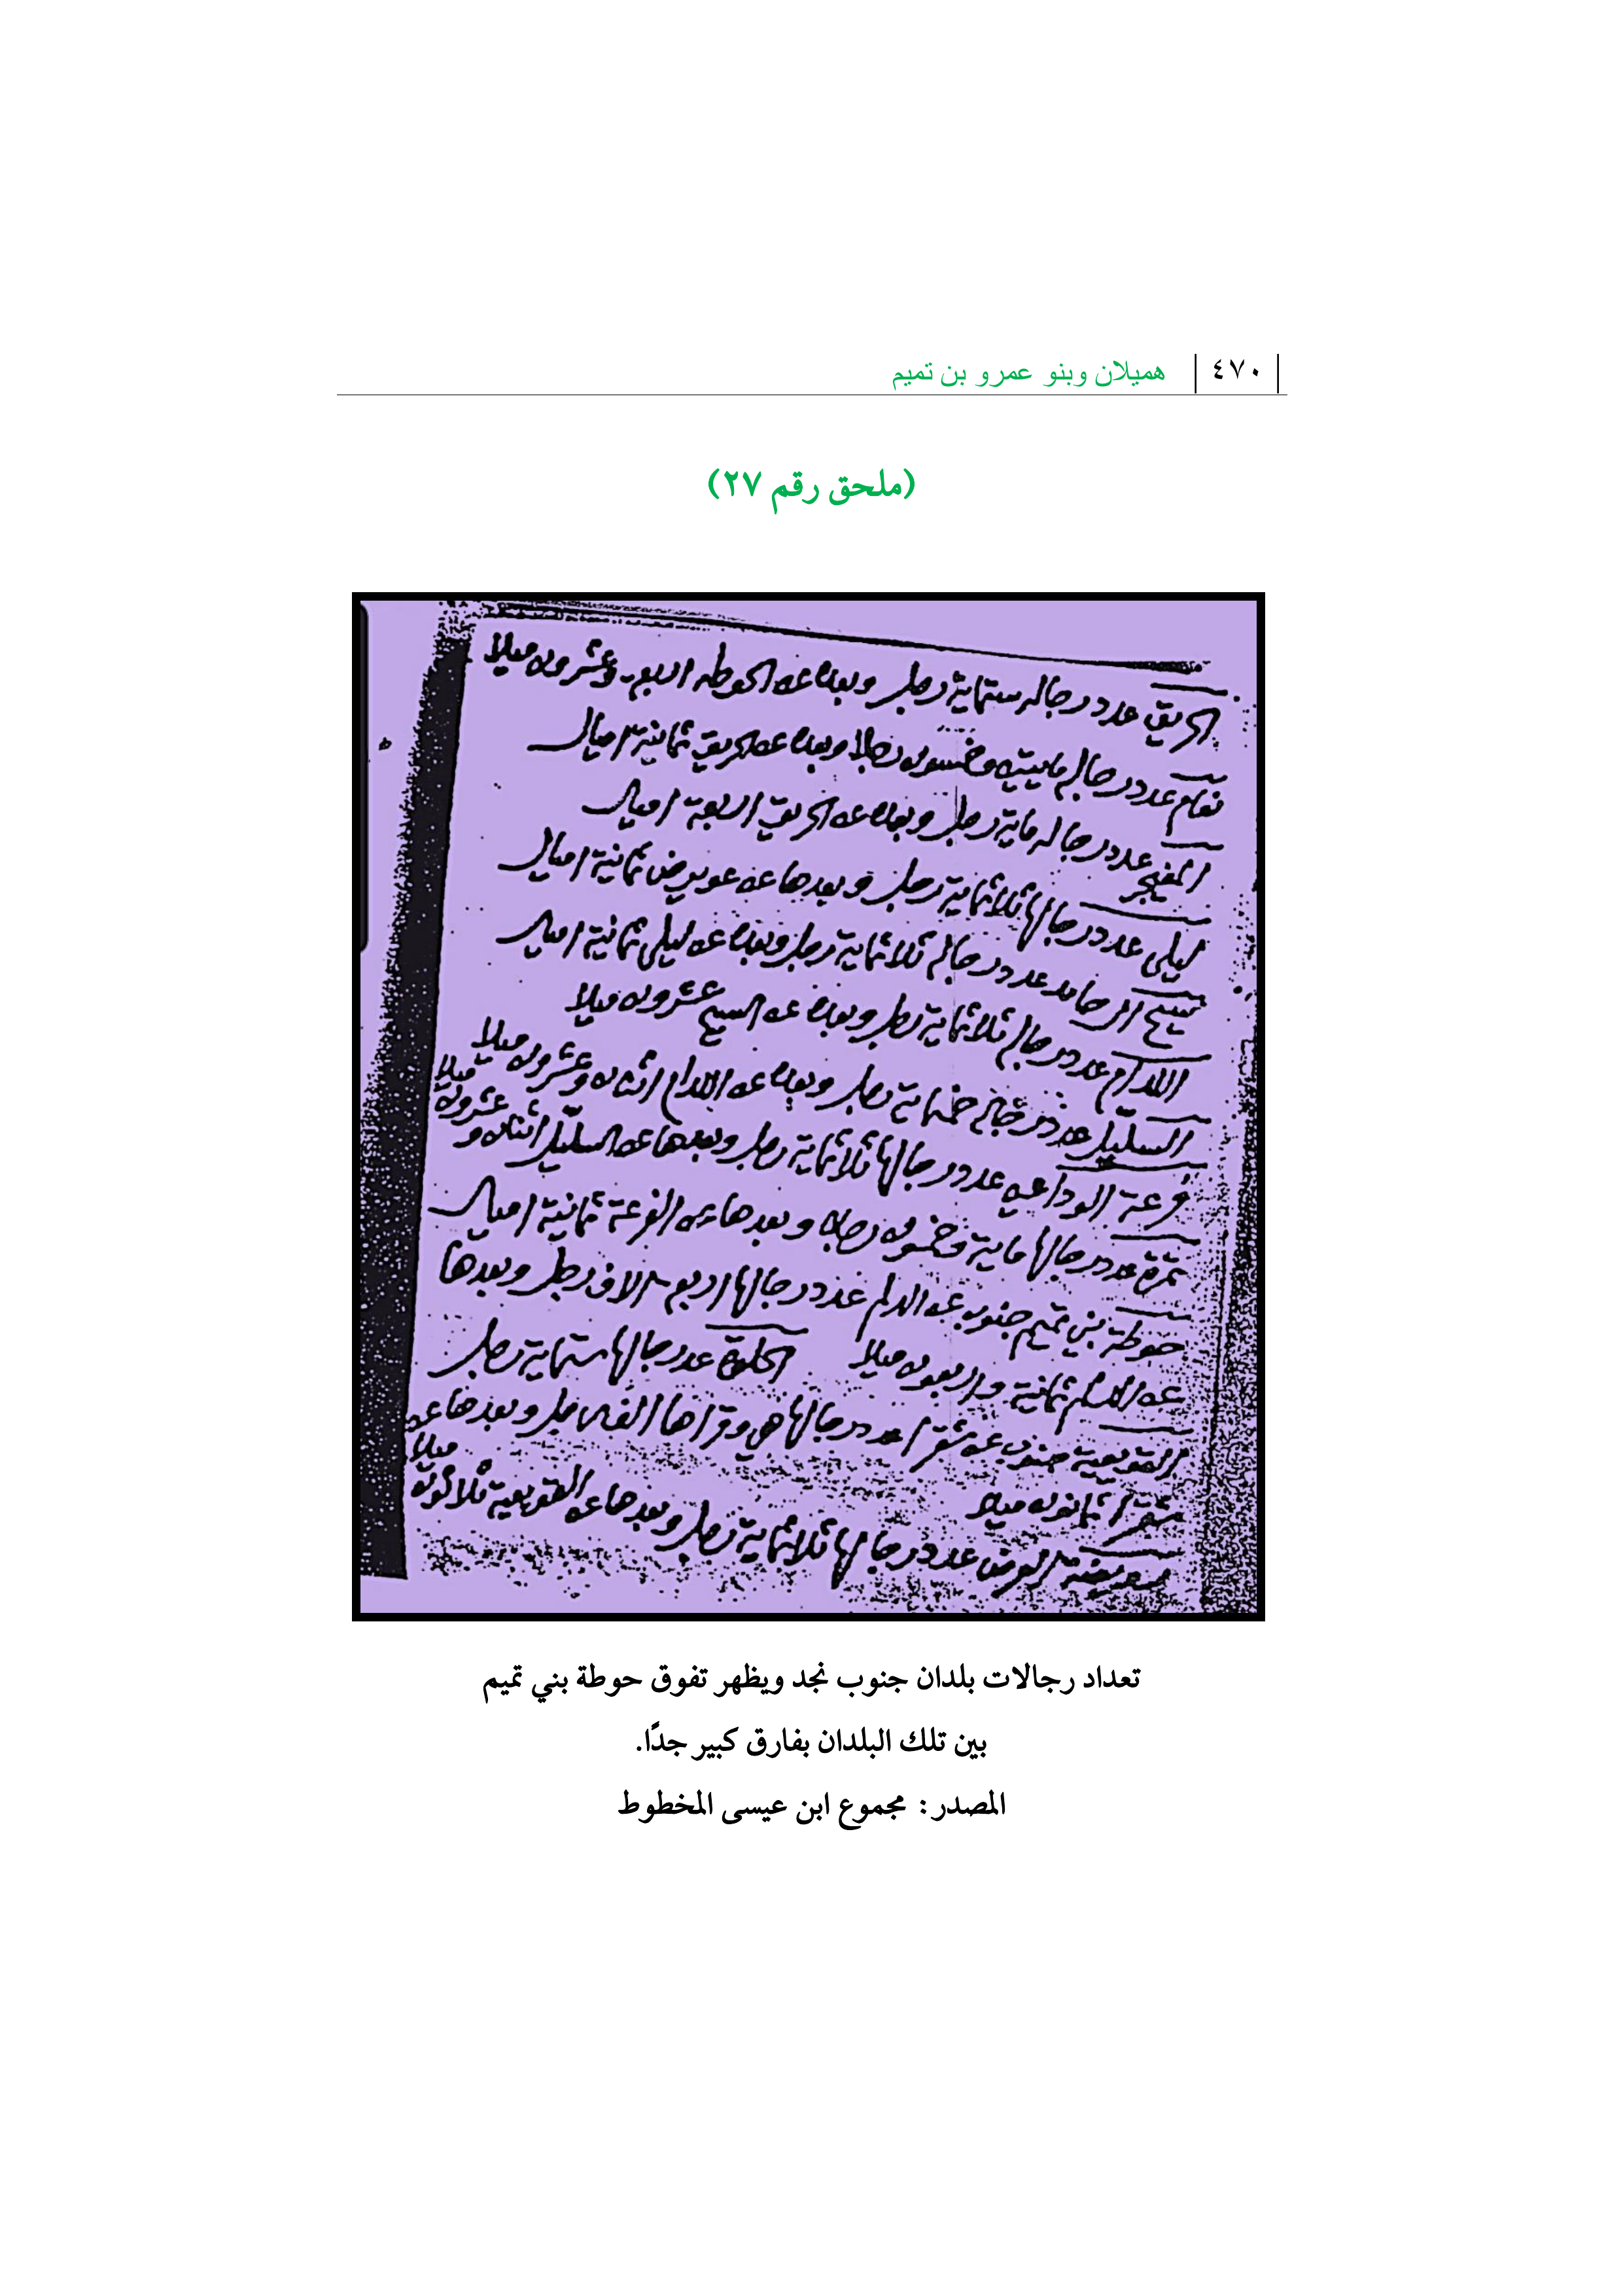 ٤٧٠
هميلان وبنو عمرو بن تميم
(ملحق رقم ٢٧)
الحريق عدد رجاله ستماية رجل وبعده عن الحوطه اربع وعشرون ميلا
نعام عدد رجاله مايتين وخمسون رجلا وبعده عن الحريق ثمانية اميال
المفيجر عدد رجاله ماية رجل وبعده عن الحريق اربعة اميال
ليلى عدد رجالها ثلاثماية رجل وبعدها عن عويرض ثمانية اميال
سيح ال حامد عدد رجاله ثلاثماية رجل وبعده عن ليلى ثمانية اميال
اللدام عدد رجاله ثلاثماية رجل وبعده عن السيح عشرون ميلا
السليل عدد رجاله خمسماية رجل وبعده عن اللدام اثنان وعشرون ميلا
فرعة الوداعين عدد رجالها ثلاثماية رجل وبعدها عن السليل اثنان وعشرون ميلا
تمرة عدد رجالها ماية وخمسون رجلا وبعدها عن الفرعة ثمانية اميال
حوطة بني تميم جنوب عن الدلم عدد رجالها اربع الاف رجل وبعدها
عن الدلم ثمانية واربعون ميلا الحلوة عدد رجالها ستماية رجل
القويعية جنوب عن شقرا عدد رجالها هي وقراها الفين رجل وبعدها عن
شقرا ثمانون ميلا
عدد رجالها ثلاثماية رجل وبعدها عن القويعية ثلاثون ميلا
تعداد رجالات بلدان جنوب نجد ويظهر تفوق حوطة بني تميم
بين تلك البلدان بفارق كبير جدًا.
المصدر: مجموع ابن عيسى المخطوط